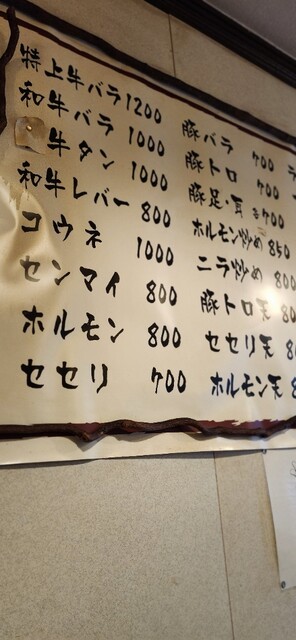 特上牛バラ 1200
和牛バラ 1000
牛タン 1000
和牛レバー 800
コウネ 1000
センマイ 800
ホルモン 800
セセリ 700
豚バラ 700
豚トロ 700
豚足・耳 各700
ホルモン炒め 850
ニラ炒め 800
豚トロ天 80
セセリ天 8
ホルモン天 8